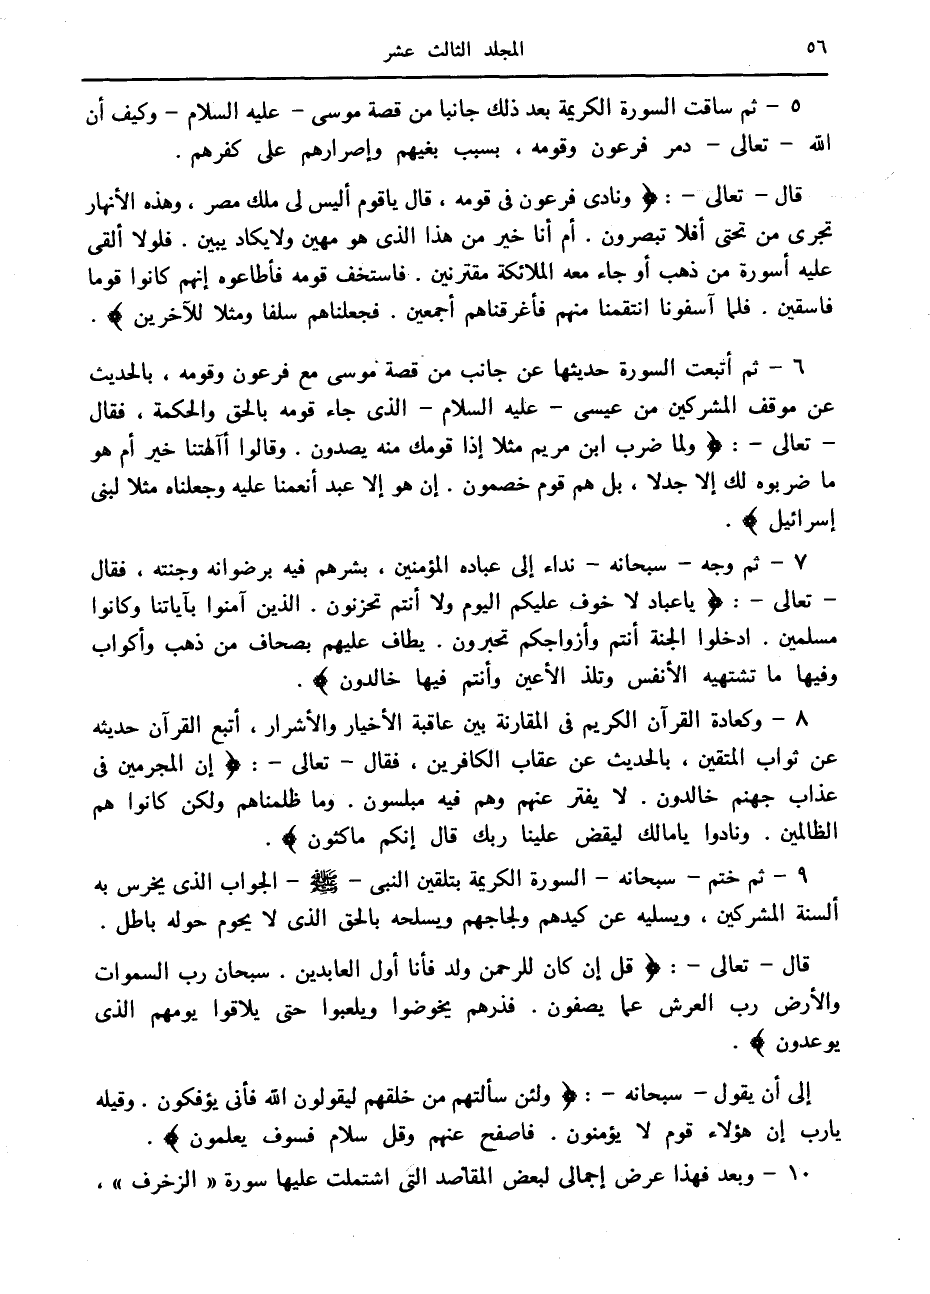 ٥٦
المجلد الثالث عشر
٥ – ثم ساقت السورة الكريمة بعد ذلك جانبا من قصة موسى – عليه السلام – وكيف أن
الله – تعالى – دمر فرعون وقومه ، بسبب بغيهم وإصرارهم على كفرهم .
قال – تعالى – : ﴿ ونادى فرعون فى قومه ، قال ياقوم أليس لى ملك مصر ، وهذه الأنهار
تجرى من تحتى أفلا تبصرون . أم أنا خير من هذا الذى هو مهين ولايكاد يبين . فلولا ألقى
عليه أسورة من ذهب أو جاء معه الملائكة مقترنين . فاستخف قومه فأطاعوه إنهم كانوا قوما
فاسقين . فلما آسفونا انتقمنا منهم فأغرقناهم أجمعين . فجعلناهم سلفا ومثلا للآخرين ﴾ .
٦ – ثم أتبعت السورة حديثها عن جانب من قصة موسى مع فرعون وقومه ، بالحديث
عن موقف المشركين من عيسى – عليه السلام – الذى جاء قومه بالحق والحكمة ، فقال
– تعالى – : ﴿ ولما ضرب ابن مريم مثلا إذا قومك منه يصدون . وقالوا أآلهتنا خير أم هو
ما ضربوه لك إلا جدلا ، بل هم قوم خصمون . إن هو إلا عبد أنعمنا عليه وجعلناه مثلا لبنى
إسرائيل ﴾ .
٧ – ثم وجه – سبحانه – نداء إلى عباده المؤمنين ، بشرهم فيه برضوانه وجنته ، فقال
– تعالى – : ﴿ ياعباد لا خوف عليكم اليوم ولا أنتم تحزنون . الذين آمنوا بآياتنا وكانوا
مسلمين . ادخلوا الجنة أنتم وأزواجكم تحبرون . يطاف عليهم بصحاف من ذهب وأكواب
وفيها ما تشتهيه الأنفس وتلذ الأعين وأنتم فيها خالدون ﴾ .
٨ – وكعادة القرآن الكريم فى المقارنة بين عاقبة الأخيار والأشرار ، أتبع القرآن حديثه
عن ثواب المتقين ، بالحديث عن عقاب الكافرين ، فقال – تعالى – : ﴿ إن المجرمين فى
عذاب جهنم خالدون . لا يفتر عنهم وهم فيه مبلسون . وما ظلمناهم ولكن كانوا هم
الظالمين . ونادوا يامالك ليقض علينا ربك قال إنكم ماكثون ﴾ .
٩ – ثم ختم – سبحانه – السورة الكريمة بتلقين النبى – ﷺ – الجواب الذى يخرس به
ألسنة المشركين ، ويسليه عن كيدهم ولجاجهم ويسلحه بالحق الذى لا يحوم حوله باطل .
قال – تعالى – : ﴿ قل إن كان للرحمن ولد فأنا أول العابدين . سبحان رب السموات
والأرض رب العرش عما يصفون . فذرهم يخوضوا ويلعبوا حتى يلاقوا يومهم الذى
يوعدون ﴾ .
إلى أن يقول – سبحانه – : ﴿ ولئن سألتهم من خلقهم ليقولون الله فأنى يؤفكون . وقيله
يارب إن هؤلاء قوم لا يؤمنون . فاصفح عنهم وقل سلام فسوف يعلمون ﴾ .
١٠ – وبعد فهذا عرض إجمالى لبعض المقاصد التى اشتملت عليها سورة « الزخرف » ،